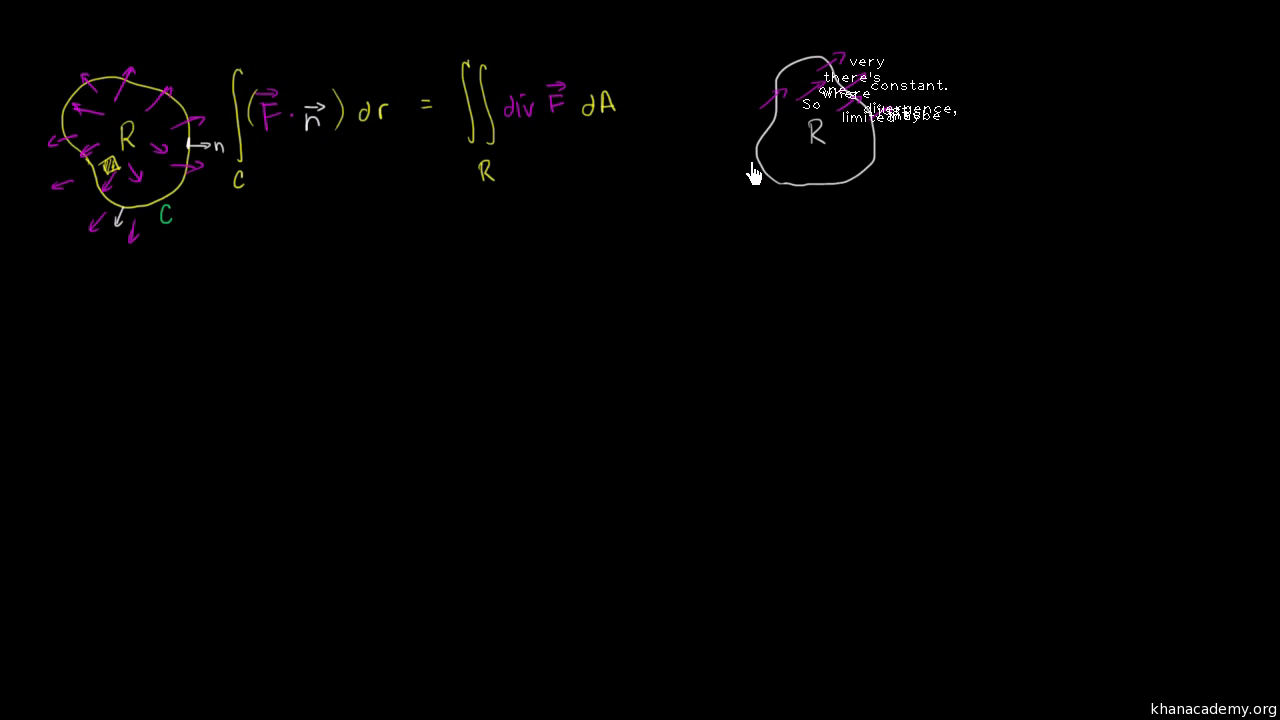 R
n
C
∫ (F⃗ · n⃗) dr = ∬ div F⃗ dA
C R
very
there's
constant.
where
So
divergence,
limited
maybe
R
khanacademy.org